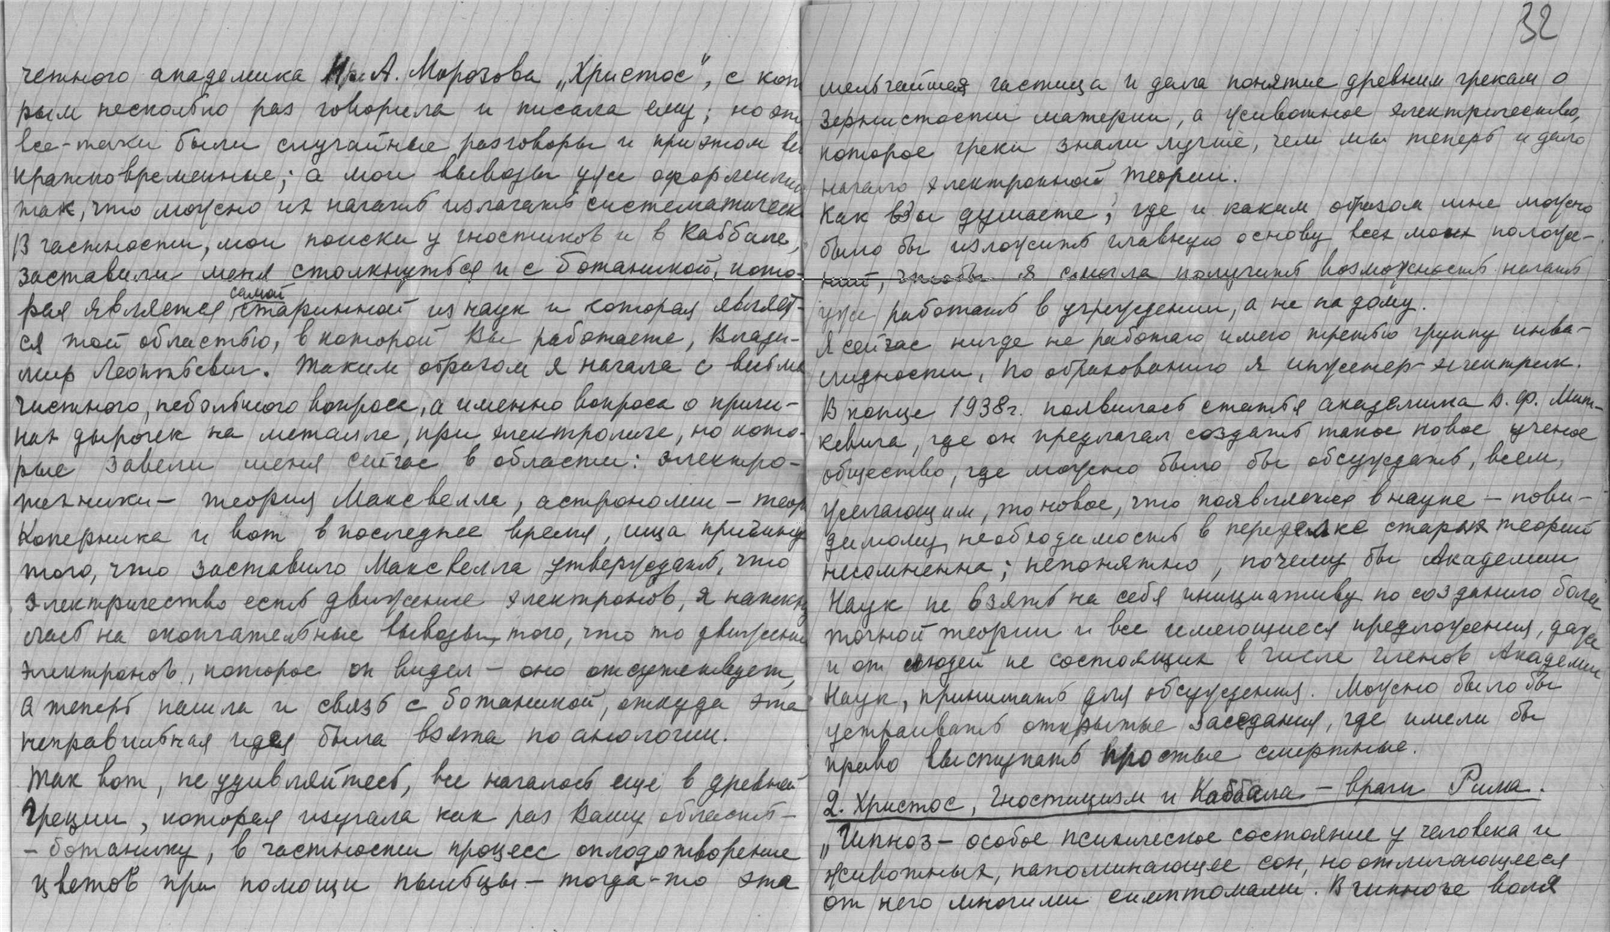 четного академика Н. А. Морозова „Христос", с кот
рым несколько раз говорила и писала ему; но эти
все-таки были случайные разговоры и при этом
кратковременные; а мои выводы уже оформлены
так, что можно их начать излагать систематическ
В частности, мои поиски у гностиков и в Каббале,
заставили меня столкнуться и с ботаникой, кото-
рая является самой старинной из наук и которая являет-
ся той областью, в которой Вы работаете, Влади-
мир Леонтьевич. Таким образом я начала с
частного, небольшого вопроса, а именно вопроса о причи-
нах дырочек на металле, при электролизе, но кото-
рые завели меня сейчас в области: электро-
техники – теория Максвелла, астрономии – теор
Коперника и вот в последнее время, ища причину
того, что заставило Максвелла утверждать, что
электричество есть движение электронов, я наткну
лась на окончательные выводы того, что то движение
электронов, которое он видел – оно отсутствует,
а теперь нашла и связь с ботаникой, откуда эта
неправильная идея была взята по анологии.
Так вот, не удивляйтесь, все началось еще в древней
Греции, которая изучала как раз Вашу область –
– ботанику, в частности процесс оплодотворение
цветов при помощи пыльцы – тогда-то эта
32
мельчайшая частица и дала понятие древним грекам о
зернистости материи, а животное электричество,
которое греки знали лучше, чем мы теперь и дало
начало электронной теории.
Как Вы думаете, где и каким образом мне можно
было бы изложить главную основу всех моих полож-
ний, чтобы я смогла получить возможность начать
уже работать в учреждении, а не на дому.
Я сейчас нигде не работаю имею третью группу инва-
лидности, по образованию я инженер-электрик.
В конце 1938г. появилась статья академика В. Ф. Мит-
кевича, где он предлагал создать такое новое ученое
общество, где можно было бы обсуждать, всем,
желающим, то новое, что появляется в науке – пови-
димому, необходимость в переделке старых теорий
несомненна; непонятно, почему бы Академии
Наук не взять на себя инициативу по созданию более
точной теории и все имеющиеся предложения, даже
и от людей не состоящих в числе членов Академии
Наук, принимать для обсуждения. Можно было бы
устраивать открытые заседания, где имели бы
право выступать простые смертные.
2. Христос, Гностицизм и Каббала – враги Рима.
„Гипноз – особое психическое состояние у человека и
животных, напоминающее сон, но отличающееся
от него многими симптомами. В гипнозе воля